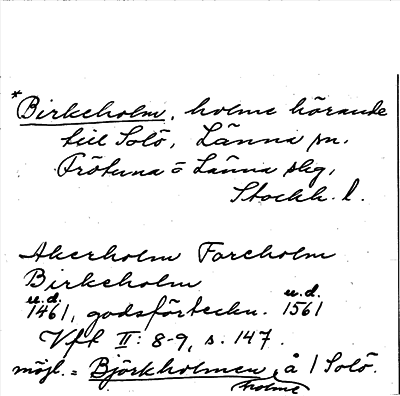 *Birkeholm, holme hörande
till Solö, Länna sn.
Frötuna o Länna slg,
Stockh. l.
Akerholm Foreholm
Birkeholm
u.d. u.d.
1461, godsförteckn. 1561
Vfl II: 8-9, s. 147.
möjl. = Björkholmen, å / Solö.
holme